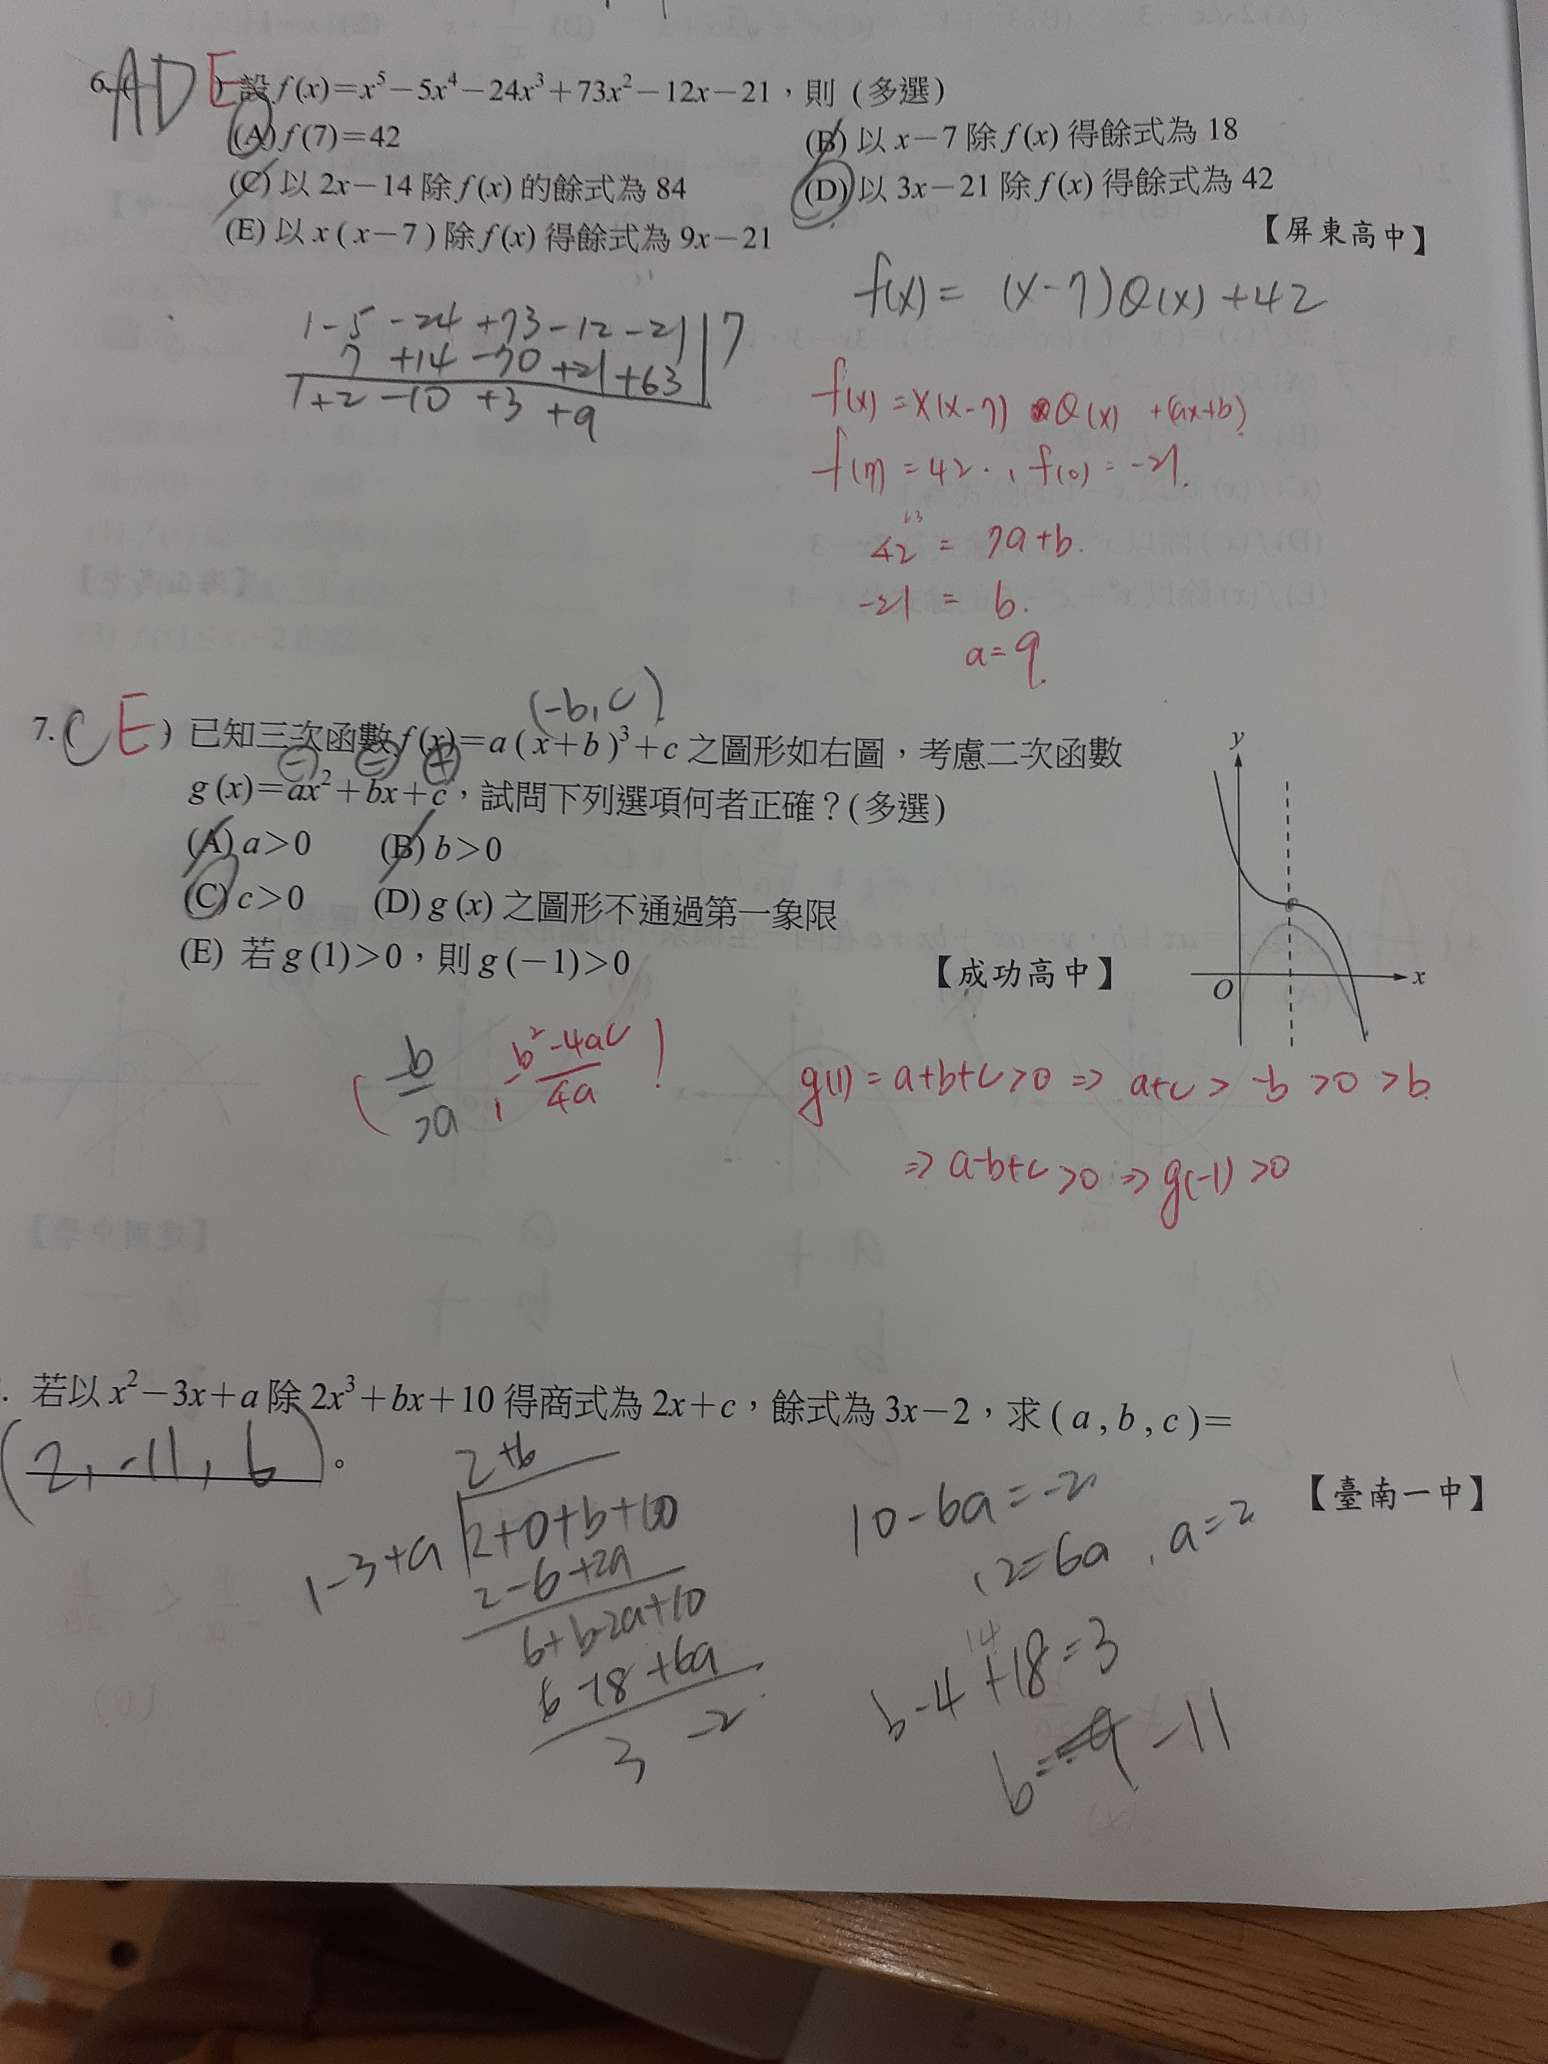 6. ADE ) 設 f(x)=x⁵−5x⁴−24x³+73x²−12x−21，則 (多選)
(A) f(7)=42 (B) 以 x−7 除 f(x) 得餘式為 18
(C) 以 2x−14 除 f(x) 的餘式為 84 (D) 以 3x−21 除 f(x) 得餘式為 42
(E) 以 x(x−7) 除 f(x) 得餘式為 9x−21 【屏東高中】
f(x) = (x−7)Q(x)+42
1−5−24+73−12−21 | 7
7+14−70+21+63
1+2−10+3+9
f(x) = x(x−7) Q(x) +(ax+b)
f(7) = 42 , f(0) = −21
63
42 = 7a+b.
−21 = b.
a=9
(−b, c)
7. (CE) 已知三次函數 f(x)=a(x+b)³+c 之圖形如右圖，考慮二次函數
− − +
g(x)=ax²+bx+c，試問下列選項何者正確？(多選)
(A) a>0 (B) b>0
(C) c>0 (D) g(x) 之圖形不通過第一象限
(E) 若 g(1)>0，則 g(−1)>0 【成功高中】
y
O
x
(−b/2a, −b²−4ac/4a)
g(1) = a+b+c>0 ⇒ a+c > −b >0 >b
⇒ a−b+c >0 ⇒ g(−1) >0
. 若以 x²−3x+a 除 2x³+bx+10 得商式為 2x+c，餘式為 3x−2，求 (a,b,c)=
(2, −11, 6)。
【臺南一中】
2+6
1−3+a 2+0+b+10
2−6+2a
6+b−2a+10
6−18+6a
3 −2
10−6a=−2
12=6a , a=2
14
b−4+18=3
b= −11